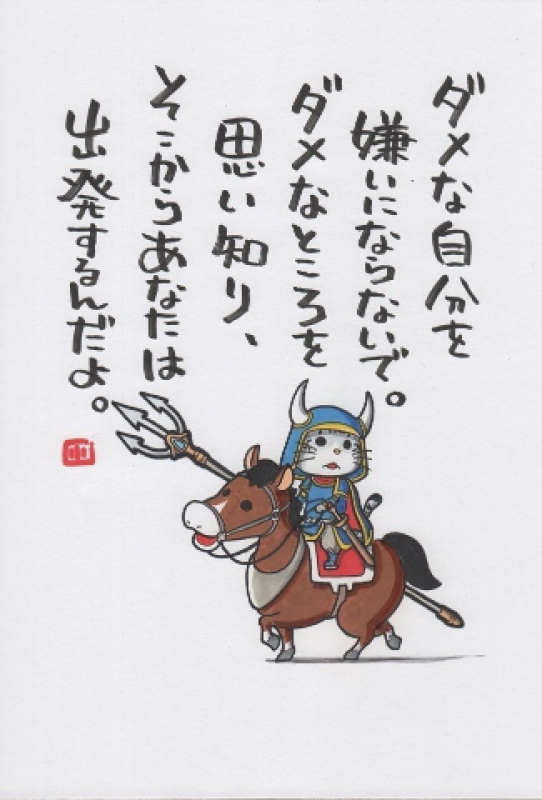 ダメな自分を
嫌いにならないで。
ダメなところを
思い知り、
そこからあなたは
出発するんだよ。